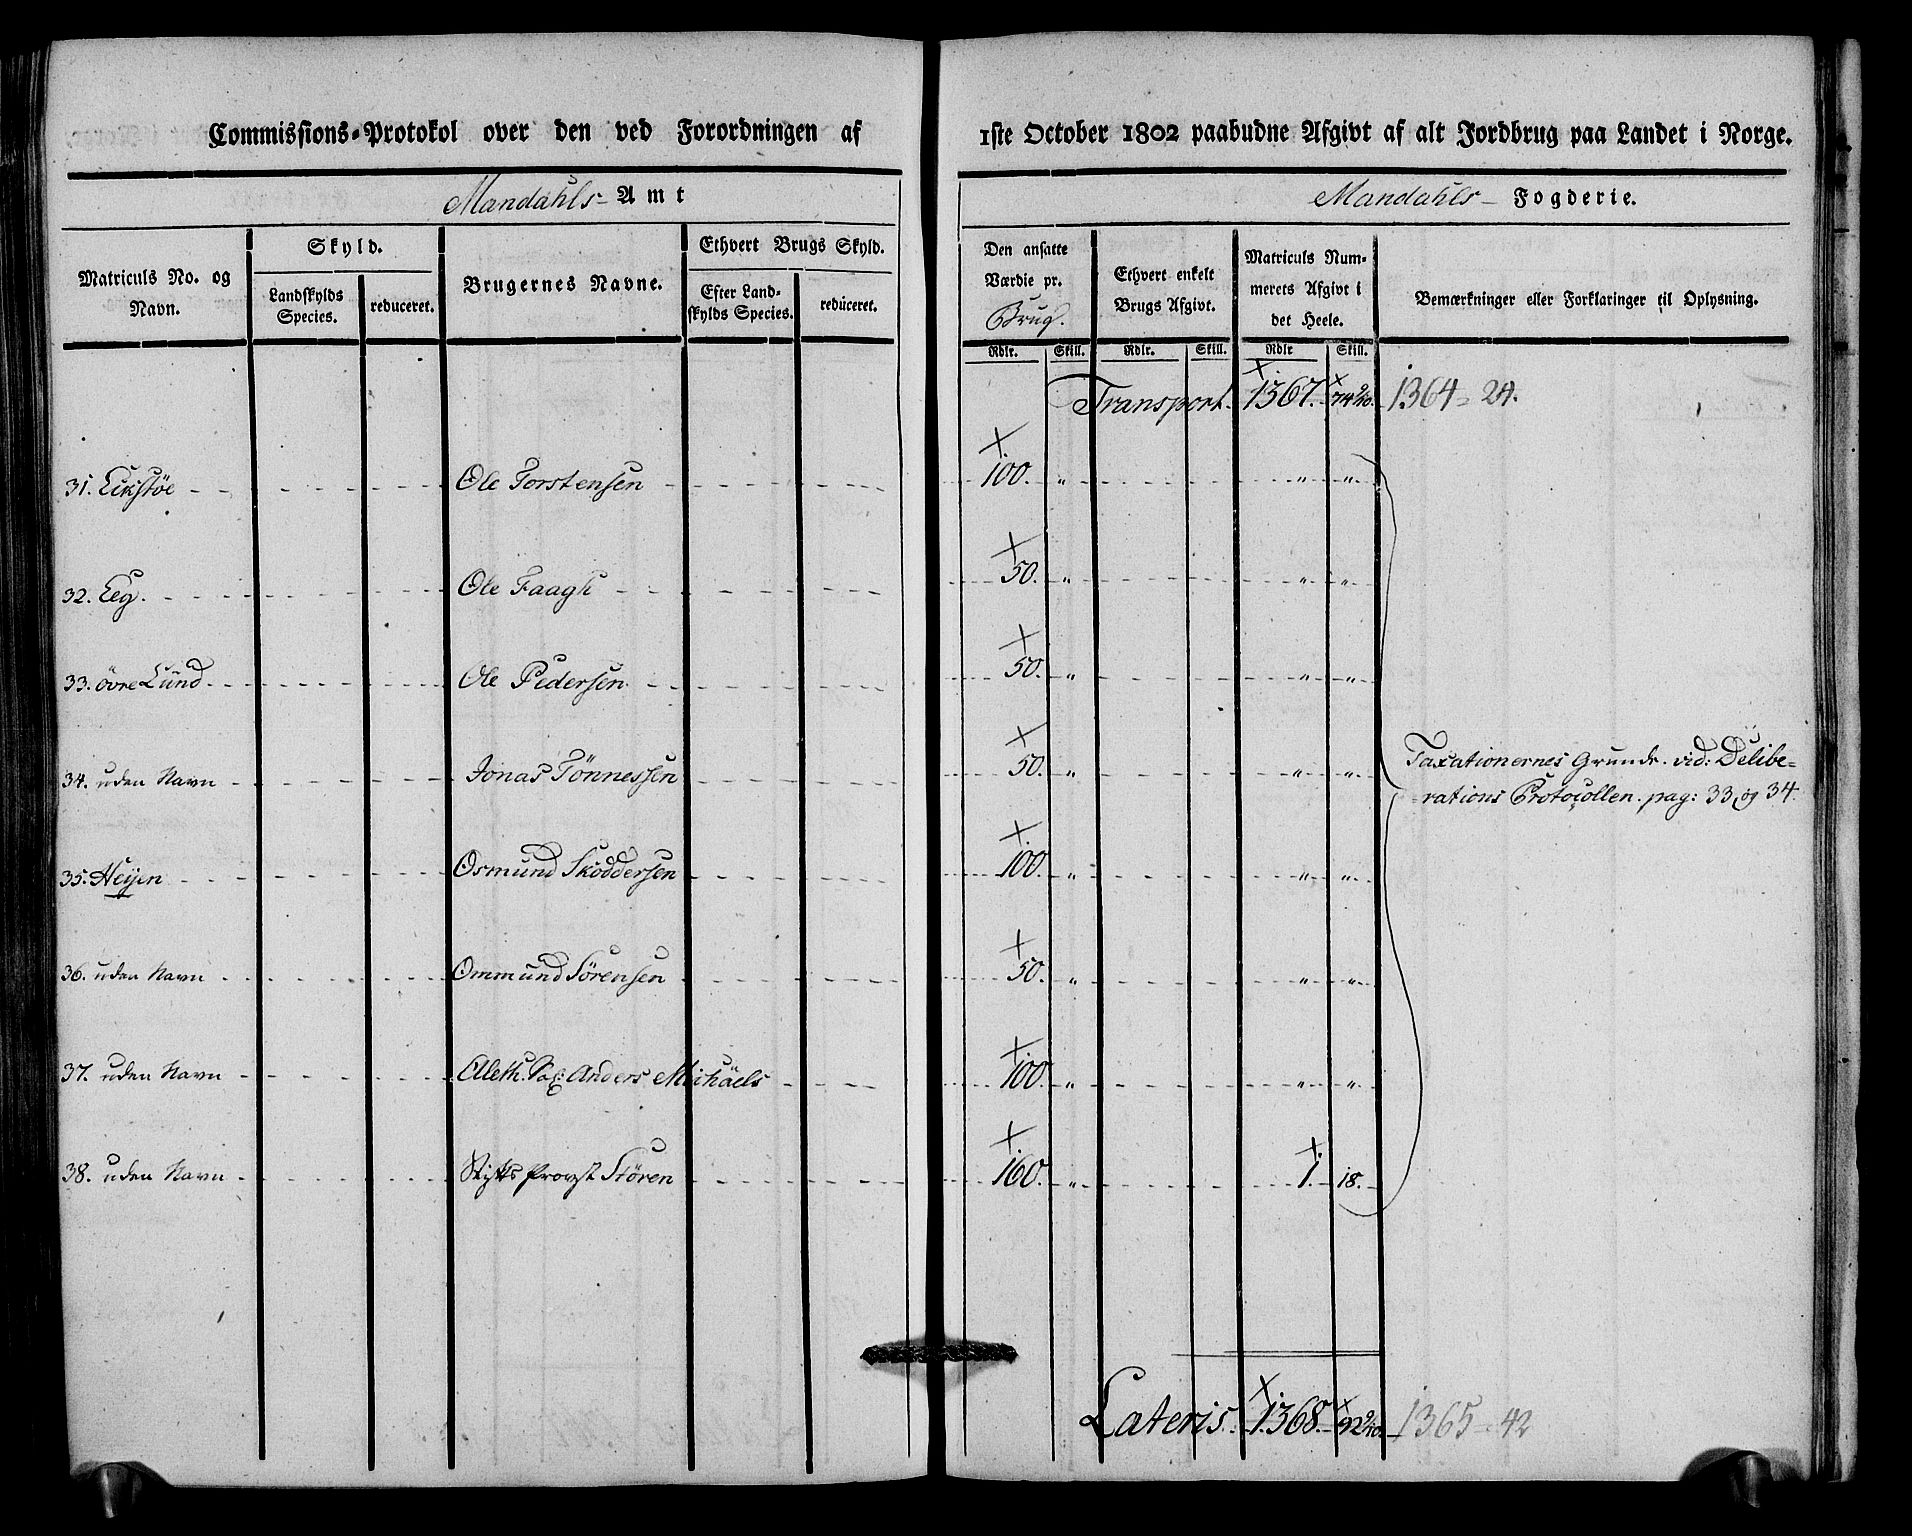 Commissions-Protokol over den ved Forordningen af 1ste October 1802 paabudne Afgivt af alt Jordbrug paa Landet i Norge.
Mandahls Amt
Mandahls Fogderie.
Matriculs No. og Navn.
Skyld.
Landskylds Species.
reduceret.
Brugernes Navne.
Ethvert Brugs Skyld.
Efter Landskylds Species.
reduceret.
Den ansatte Værdie pr. Brug.
Ethvert enkelt Brugs Afgivt.
Matriculs Nummerets Afgivt i det Heele.
Bemærkninger eller Forklaringer til Oplysning.
Rdlr. Skill. Rdlr. Skill. Rdlr Skill.
Transport. 1367. 1364 = 24.
31. Eckstøe Ole Torstensen 100. " " "
32. Eeg. Ole Faagh 50. " " "
33. øvre Lund Ole Pedersen 50. " " "
34. uden Navn Jonas Tønnessen 50. " " "
Taxationernes Grunde vid: Delibe-
rations Protocollen pag: 33, og 34.
35. Heyen Osmund Skoddersen 100. " " "
36. uden Navn Ommund Sørensen 50. " " "
37. uden Navn Anders Michaels 100. " " "
38. uden Navn Stifts Provst Støren 160. " 1. 18.
Lateris 1368. 1365 = 42